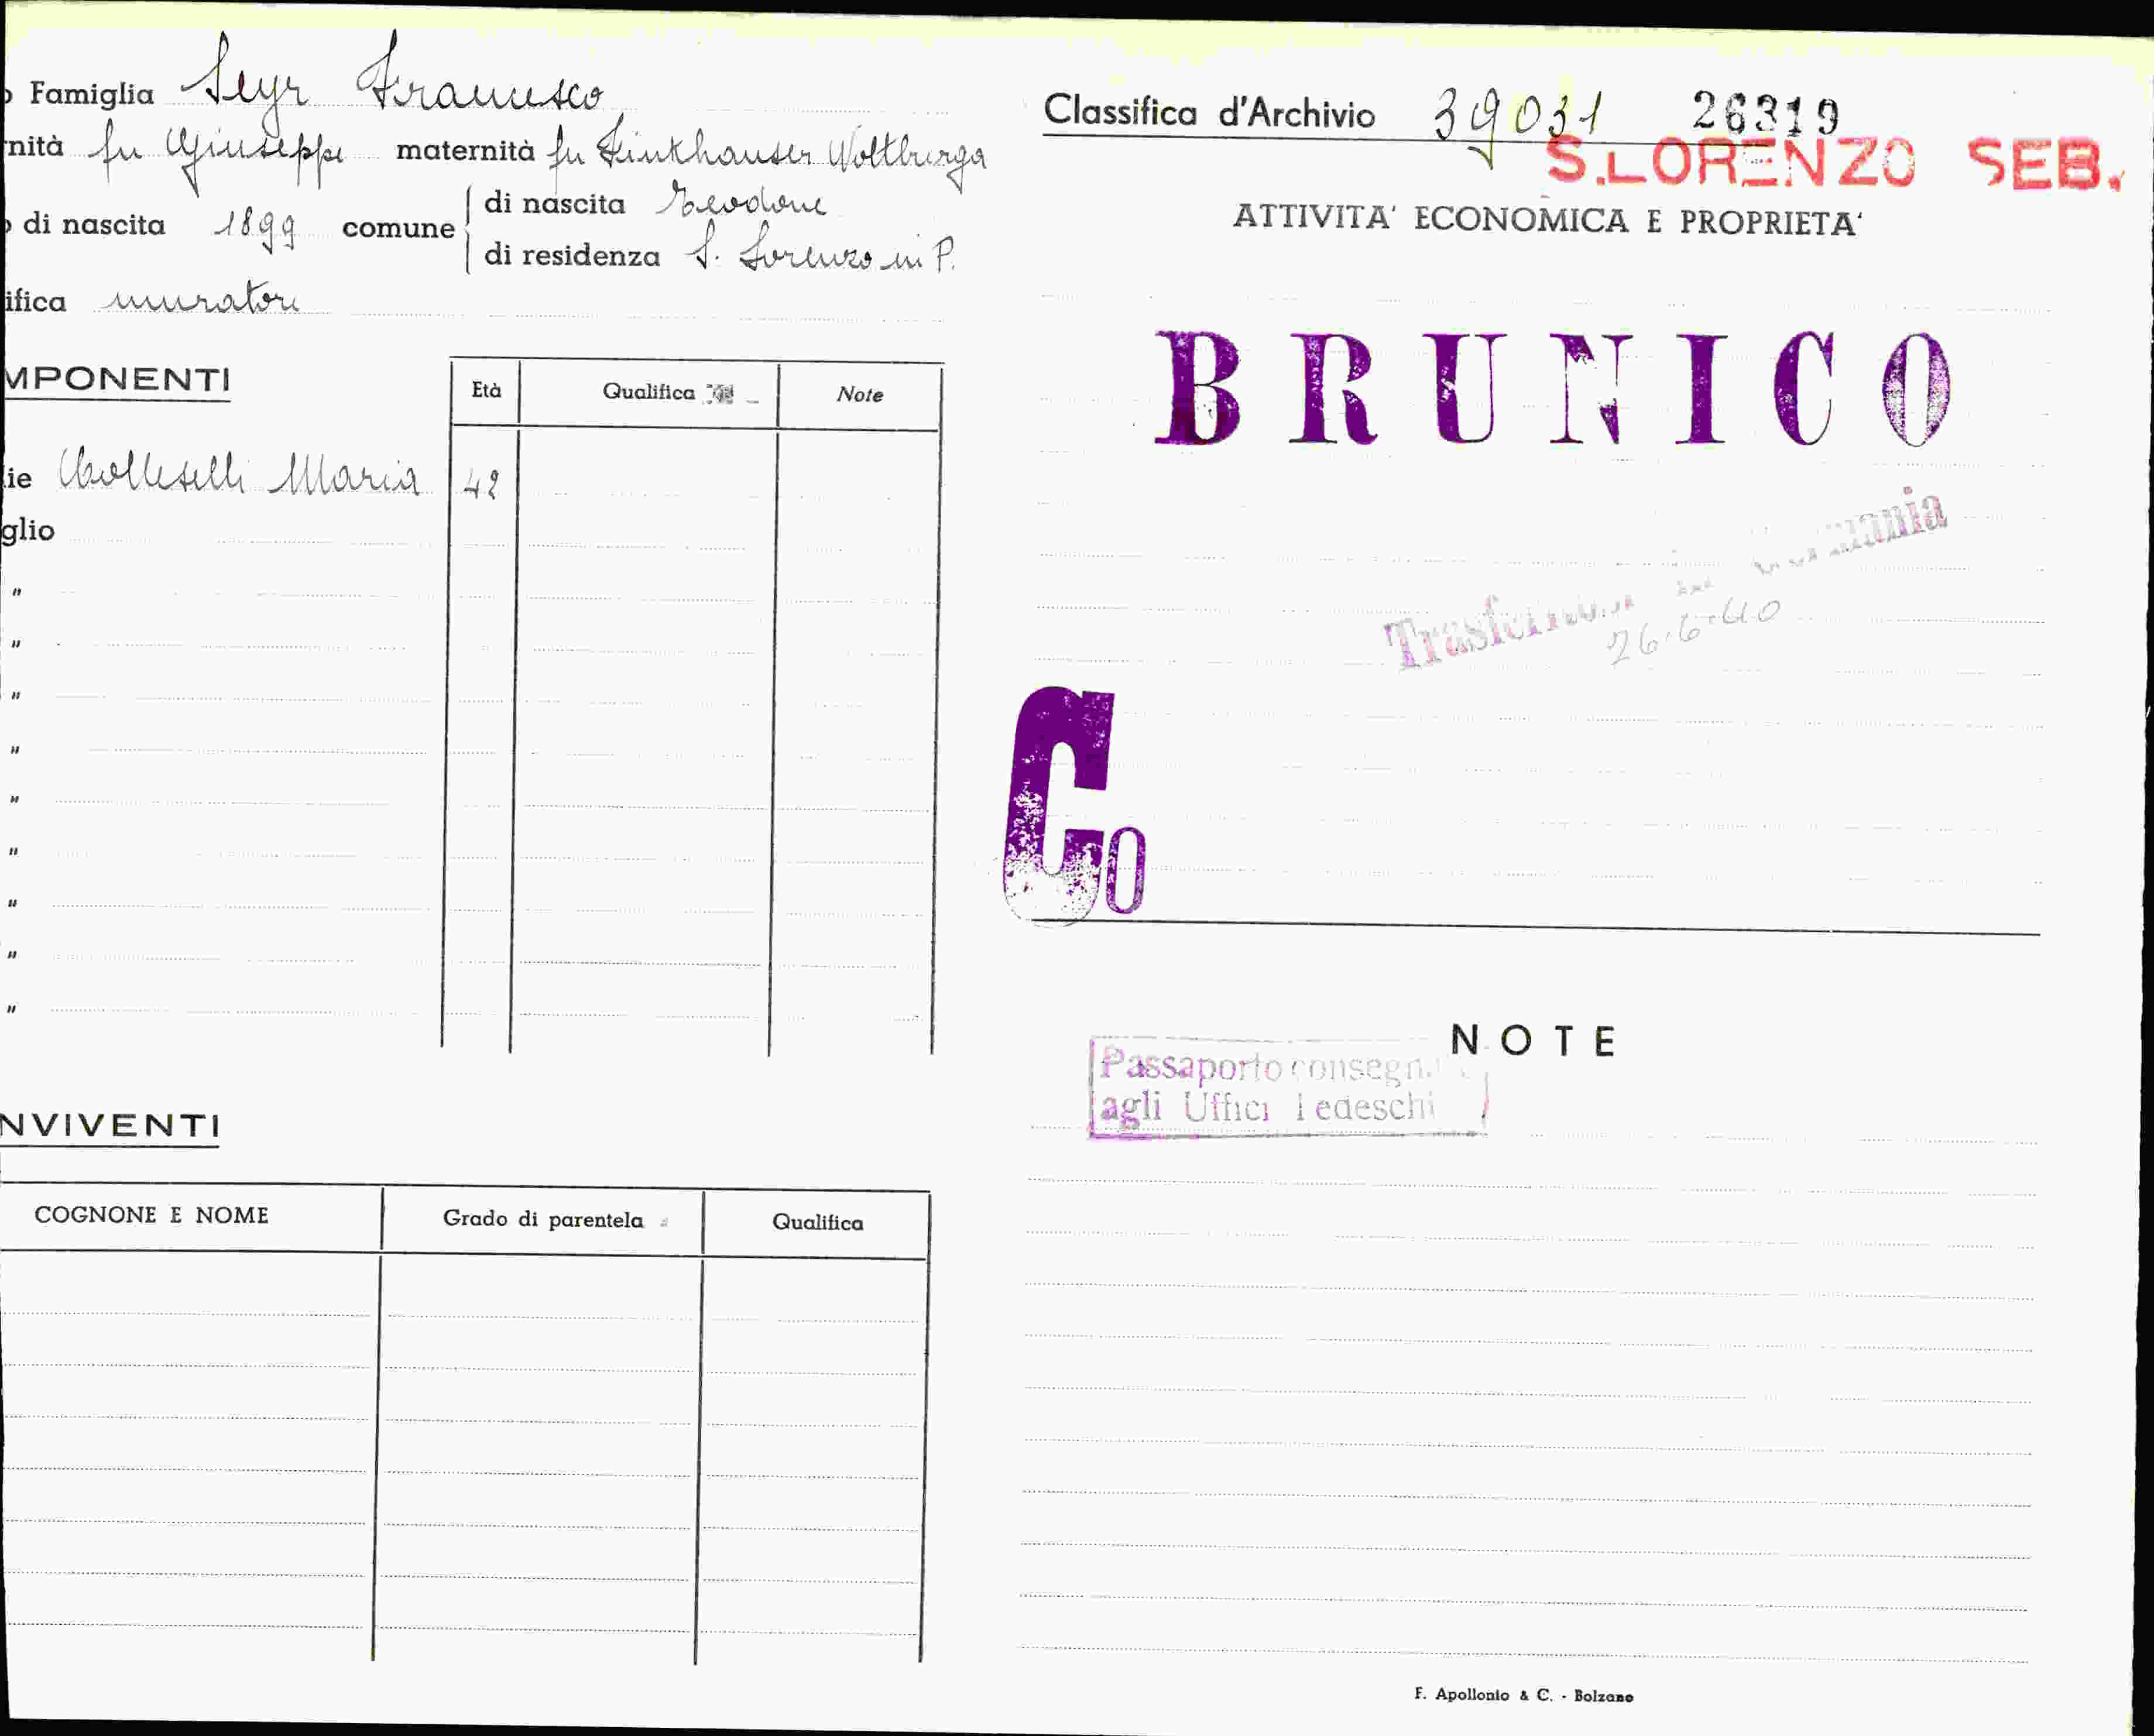 o Famiglia Seyr Francesco
rnità fu Giuseppe maternità fu Finkhauser Woltburga
o di nascita 1899 comune di nascita Teodone
di residenza S. Lorenzo in P.
ifica muratore
MPONENTI
Età Qualifica Note
lie Colleselli Maria 42
glio
"
"
"
"
"
"
"
"
"
NVIVENTI
COGNONE E NOME Grado di parentela Qualifica
Classifica d'Archivio 39031 26319
S.LORENZO SEB.
ATTIVITA' ECONOMICA E PROPRIETA'
BRUNICO
26.6.40
Co
NOTE
Passaporto
agli Uffici Tedeschi
F. Apollonio & C. - Bolzano